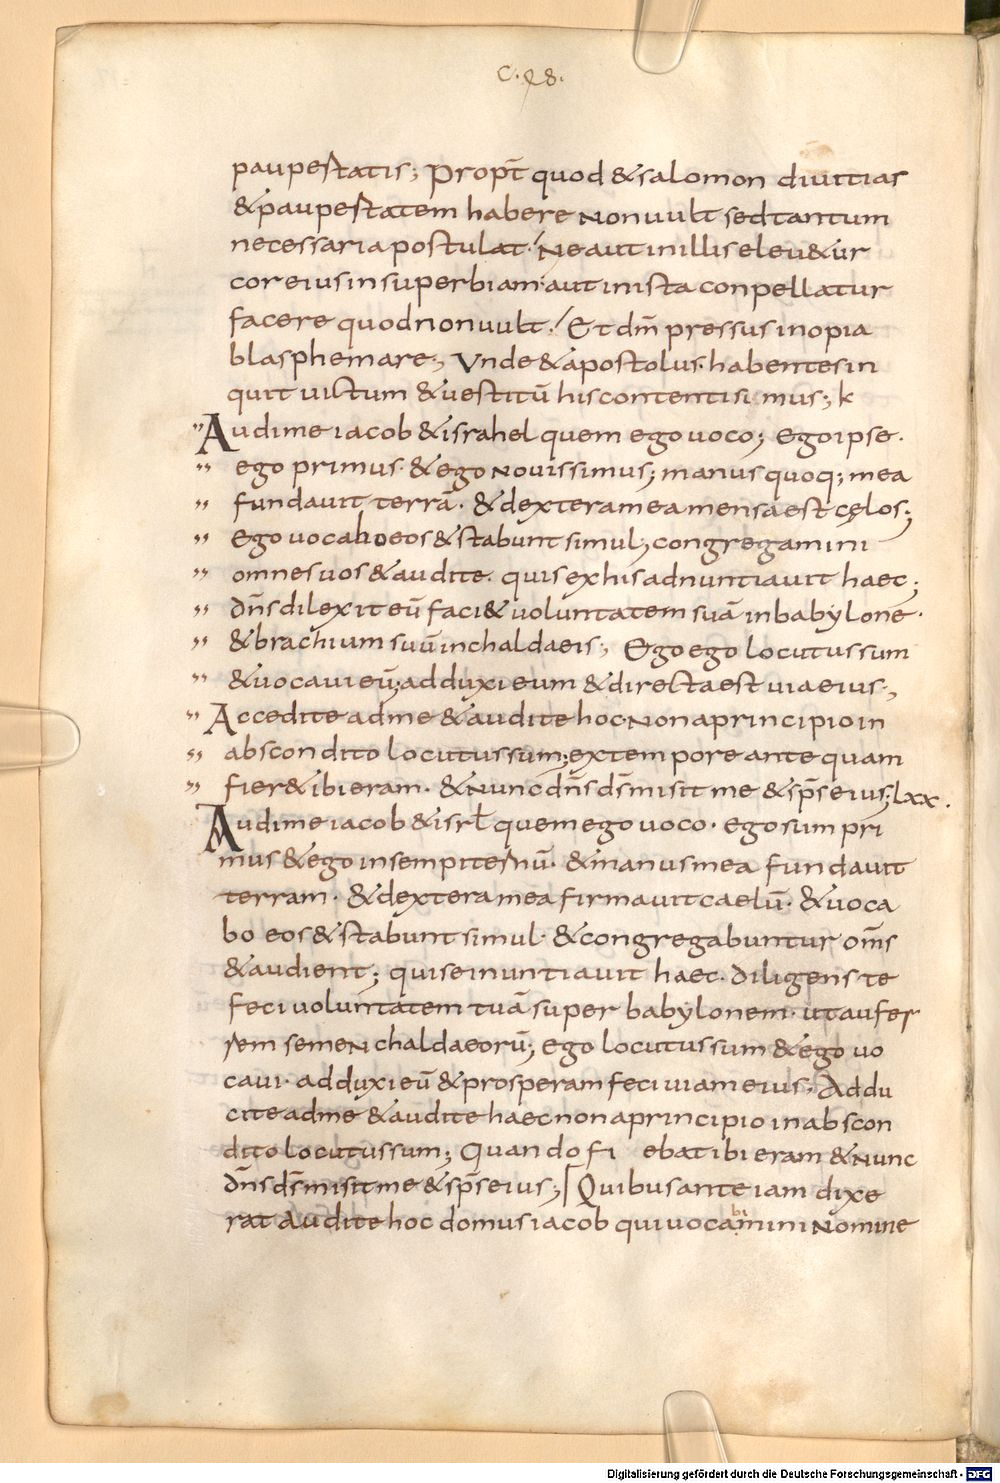 C·28·
paupertatis; Propt̄ quod & salomon diuitias
& paupertatem habere non uult sed tantum
necessaria postulat·/ Ne aut in illis eleu&ur
cor eius in superbiam· aut in ista conpellatur
facere quod non uult·/ Et dm̄ pressus inopia
blasphemare; Vnde & apostolus· habentes in
quit uictum & uestitū his contenti si mus; k
Audi me iacob & israhel quem ego uoco; ego ipse·
ego primus· & ego nouissimus; manus quoq; mea
fundauit terrā· & dextera mea mensa est cęlos;
ego uocabo eos & stabunt simul; congregamini
omnes uos & audite· quis ex his adnuntiauit haec;
dn̄s dilexit eū faci& uoluntatem suā in babylone·
& brachium suū in chaldaeis; Ego ego locutus sum
& uocaui eū; adduxi eum & directa est uia eius;
Accedite ad me & audite hoc· Non a principio in
abscondito locutus sum; ex tempore ante quam
fier& ibi eram· & nunc dn̄s ds̄ misit me & sp̄s eius; lxx·
Audi me iacob & isrl̄ quem ego uoco· ego sum pri
mus & ego in sempiternū· & manus mea fundauit
terram· & dextera mea firmauit caelū· & uoca
bo eos & stabunt simul· & congregabuntur om̄s
& audient; quis ei nuntiauit haec· diligens te
feci uoluntatem tuā super babylonem· ut aufer
rem semen chaldaeorū; ego locutus sum & ego uo
caui· adduxi eū & prosperam feci uiam eius; Addu
cite ad me & audite haec non a principio in abscon
dito locutus sum; Quando fi ebat ibi eram & nunc
dn̄s ds̄ misit me & sp̄s eius; Quibus ante iam dixe
rat Audite hoc domus iacob qui uocamini nomine
bi
Digitalisierung gefördert durch die Deutsche Forschungsgemeinschaft - DFG